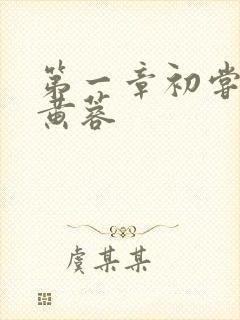 第一章初尝
黄蓉
虞某某